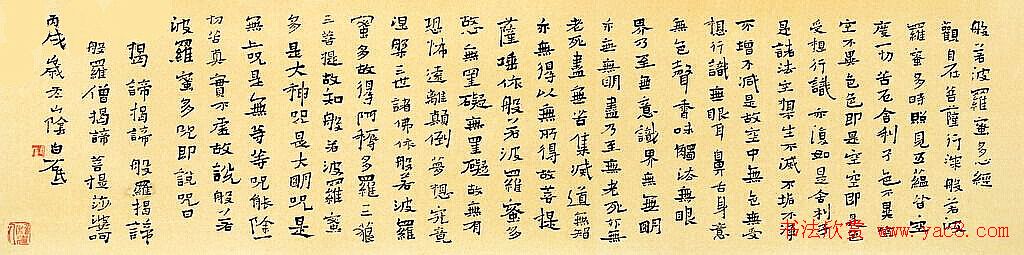 般若波羅蜜多心經
觀自在菩薩行深般若波
羅蜜多時照見五蘊皆空
度一切苦厄舍利子色不異
空空不異色色即是空空即是色
受想行識亦復如是舍利子
是諸法空相不生不滅不垢不淨
不增不減是故空中無色無受
想行識無眼耳鼻舌身意
無色聲香味觸法無眼
界乃至無意識界無無明
亦無無明盡乃至無老死亦無
老死盡無苦集滅道無智
亦無得以無所得故菩提
薩埵依般若波羅蜜多
故無罣礙無罣礙故無有
恐怖遠離顛倒夢想究竟
涅槃三世諸佛依般若波羅
蜜多故得阿耨多羅三藐
三菩提故知般若波羅蜜
多是大神咒是大明咒是
無上咒是無等等咒能除一
切苦真實不虛故說般若
波羅蜜多咒即說咒曰
揭諦揭諦般羅揭諦
般羅僧揭諦菩提莎婆訶
丙戌歲於山陰白蕉
书法欣赏 www.yac8.com